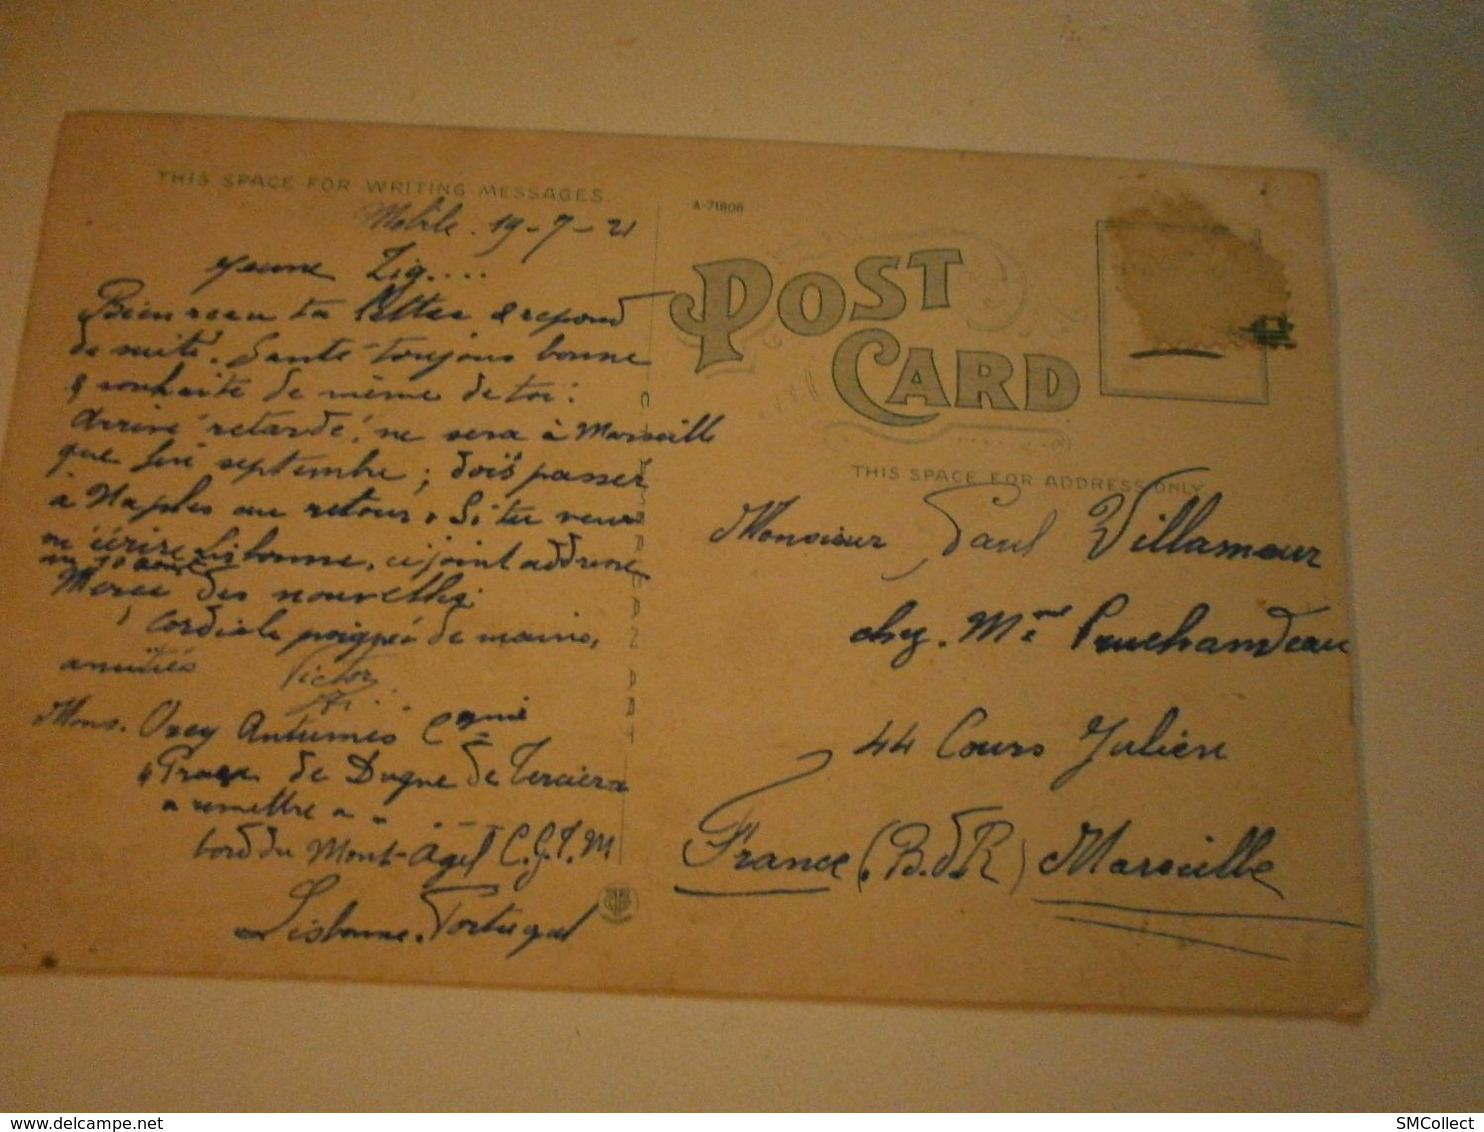 THIS SPACE FOR WRITING MESSAGES.
Mobile. 19-7-21
Jeune Zig....
Bien reçu ta lettre & repond
de suite. Santé toujours bonne
& souhaite de même de toi:
arrivé retardé! ne sera à Marseille
que fin septembre; dois passer
à Naples au retour. Si tu veux
m'écrire Lisbonne, ci joint addresse
Merci des nouvelles:
Cordiale poignée de mains,
amitiés Victor
Mons. Orey Antunes Cgnie
4 Praça de Duque de Terciera
a remettre a
bord du Mont-Agel C.G.T.M
Lisbonne. Portugal
A-71808
POST
CARD
THIS SPACE FOR ADDRESS ONLY
Monsieur Paul Villamaur
chez. Mme Pruchandeau
44 Cours Julien
France (B.d.R) Marseille
SMCollect